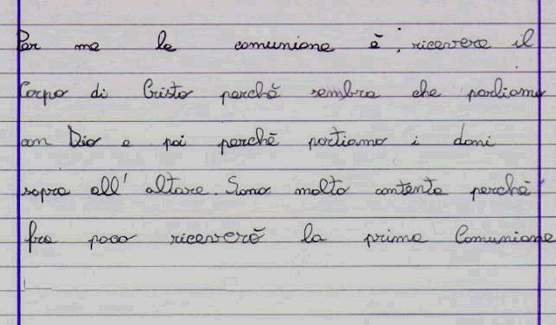 Per me la comunione è: ricevere il
Corpo di Cristo perchè sembra che parliamo
con Dio e poi perchè portiamo i doni
sopra all' altare. Sono molto contenta perchè
fra poco riceverò la prima Comunione